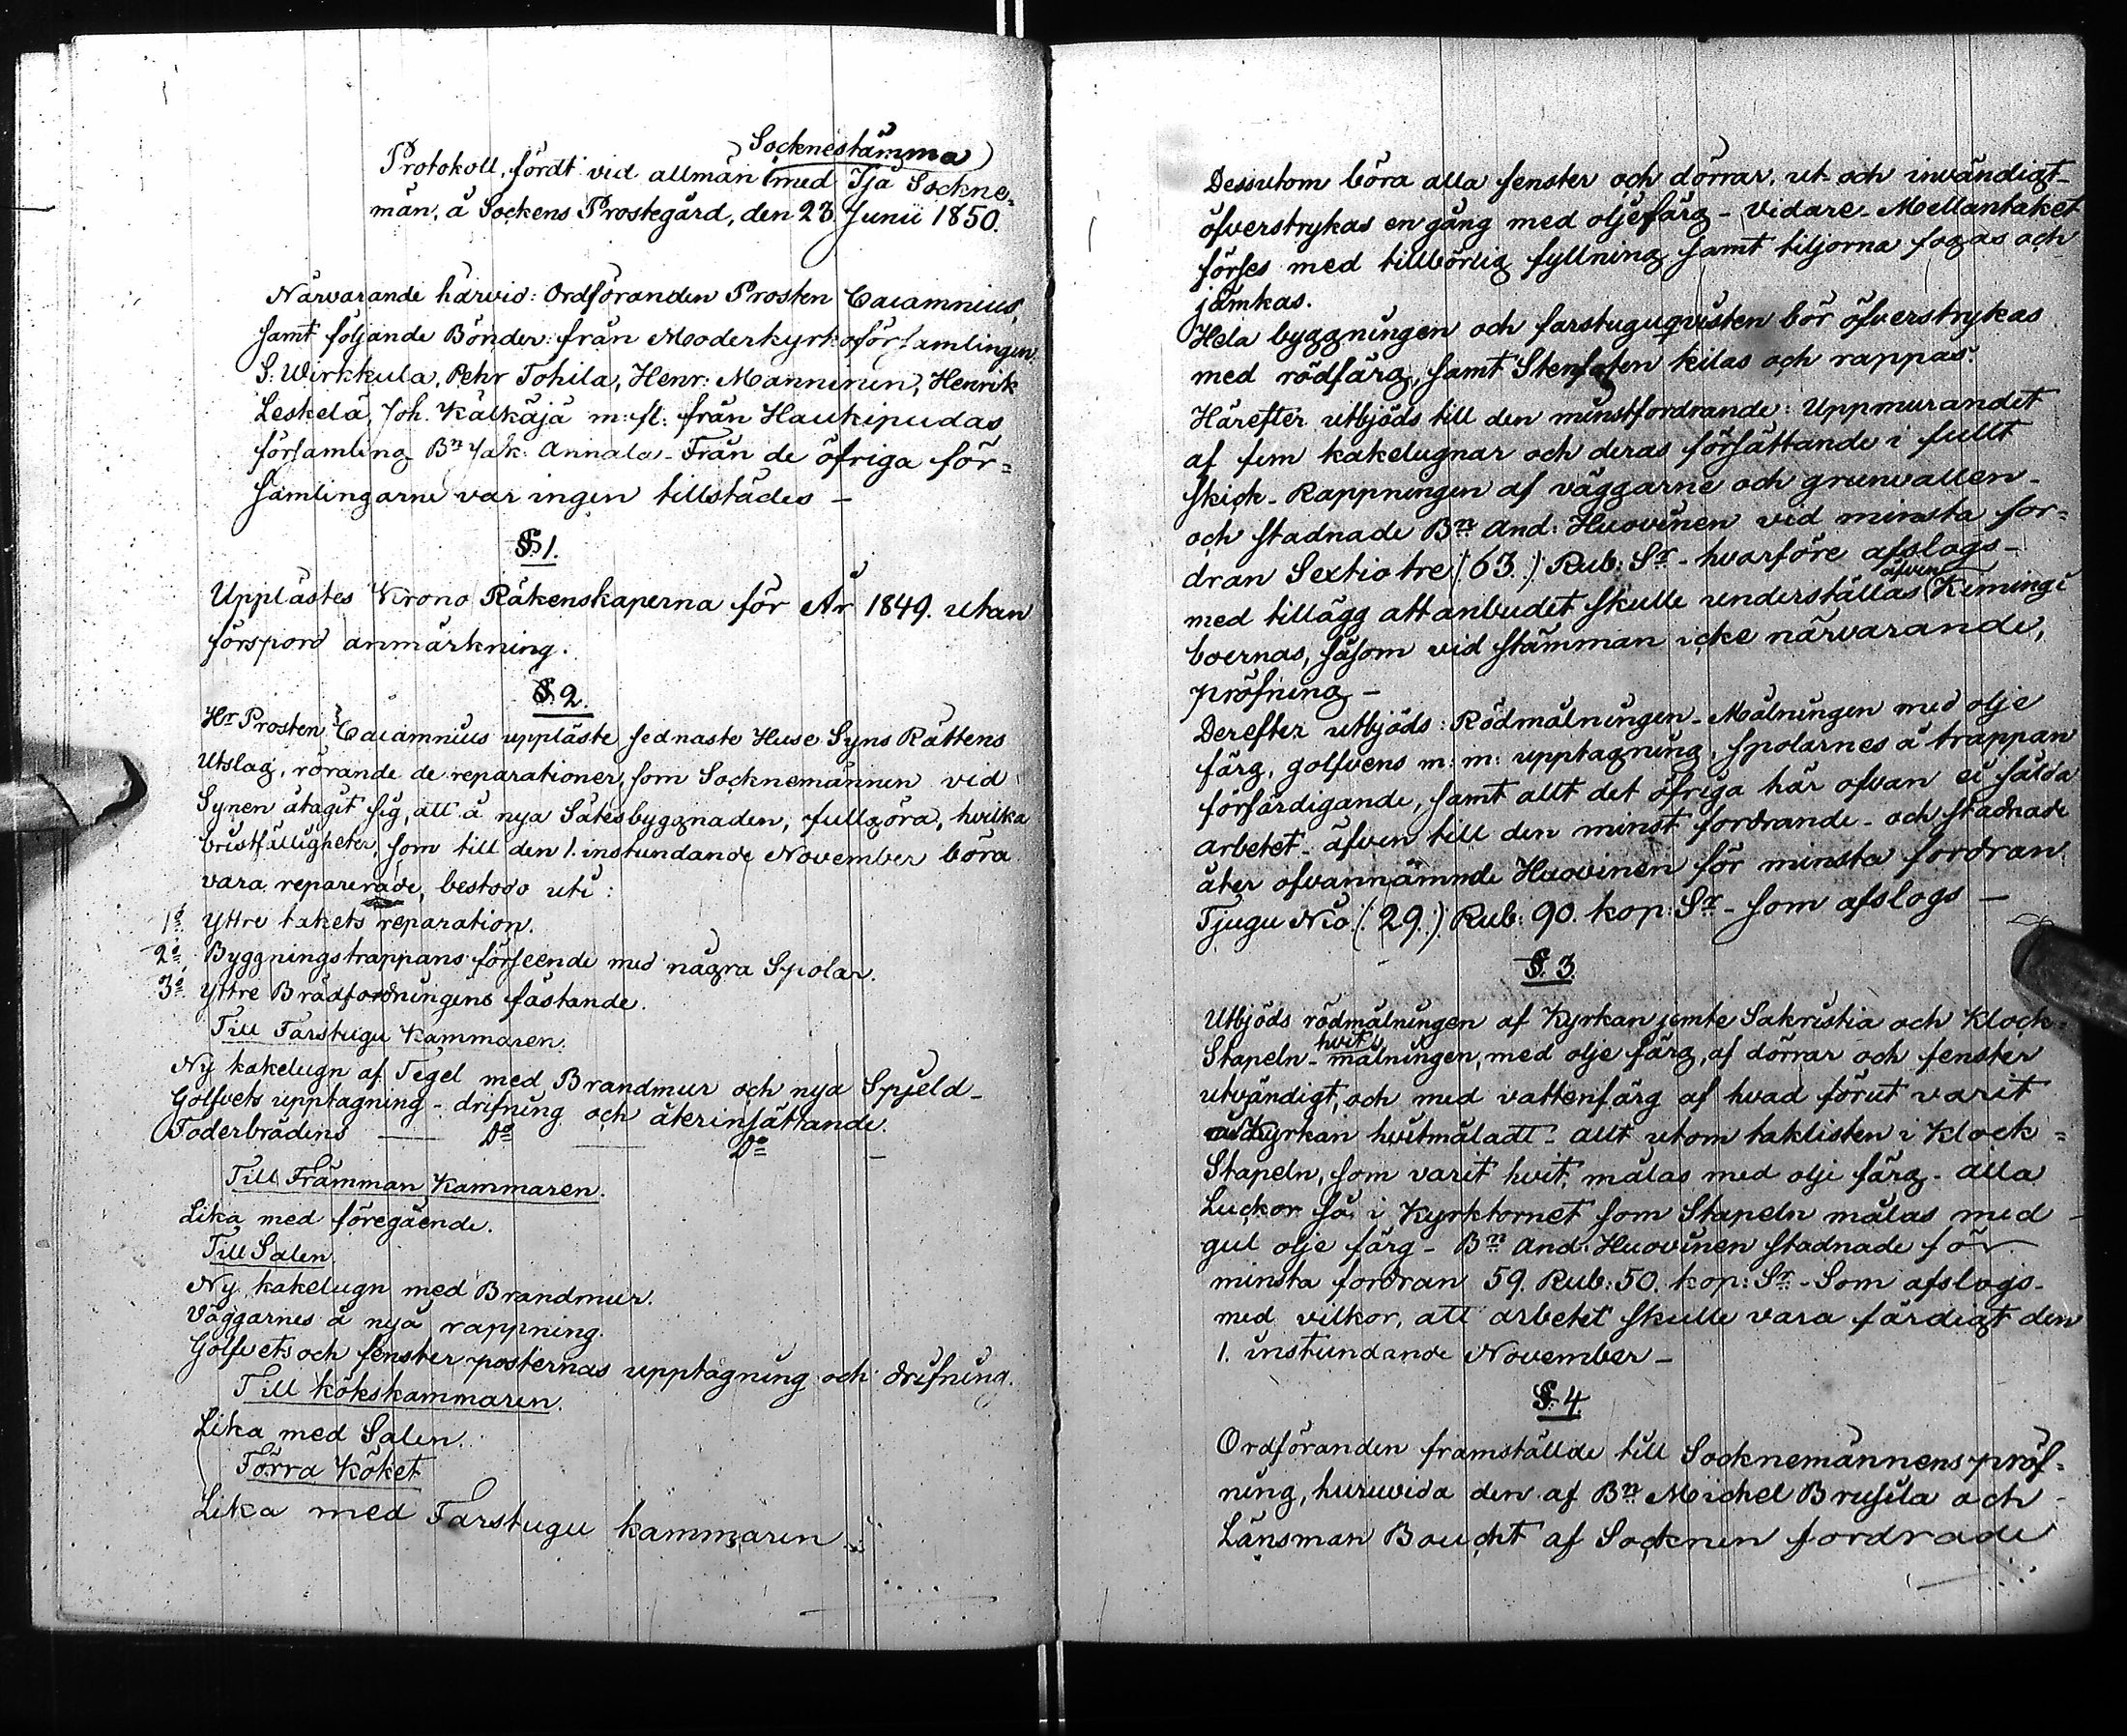 Socknestämma
Protokoll, fördt vid allmän med Ijå Sockne-
män, å Sockens Prostegård, den 23 Junii 1850.
Närvarande härvid: Ordföranden Prosten Caiamnius,
samt följande Bönder: från Moderkyrkoförsamlingen
S: Wirkkula, Pehr Tohila, Henr: Manninen, Henrik
Leskelä, Joh. Kälkäjä m: fl: från Haukipudas
församling Bn Jak: Annala - Från de öfriga för=
samlingarne var ingen tillstädes -
§ 1.
Upplästes Krono Räkenskaperna för År 1849. utan
förspord anmärkning.
§ 2.
Hr Prosten Caiamnius uppläste sednaste Huse Syns Rättens
Utslag, rörande de reparationer, som Socknemännen vid
Synen åtagit sig, att å nya Sätesbyggnaden, fullgöra, hvilka
bristfälligheter, som till den 1. instundande November böra
vara reparerade, bestodo uti:
1o Yttre takets reparation.
2o Byggningstrappans förseende med några Spolar.
3o Yttre Brädfordningens fästande.
Till Farstugu Kammaren.
Ny kakelugn af Tegel med Brandmur och nya Spjeld -
Golfvets upptagning - drifning och återinsättande.
Foderbrädens — Do — Do —
Till Främman Kammaren.
Lika med föregående.
Till Salen.
Ny kakelugn med Brandmur.
Väggarnes å nyå rappning.
Golfvets och fenster posternas upptagning och drifning.
Till Kökskammaren.
Lika med Salen.
Förra Köket
Lika med Farstugu kammaren.
Dessutom böra alla fenster och dörrar, ut- och invändigt -
öfverstrykas en gång med oljefärg - Vidare - Mellantaket
förses med tillbörlig fyllning samt tiljorna fogas och
jämkas.
Hela byggningen och farstuguqvisten bör öfverstrykas
med rödfärg, samt Stenfoten kilas och rappas.
Härefter utbjöds till den minstfordrande: Uppmurandet
af fem kakelugnar och deras försättande i fullt
skick - Rappningen af väggarne och grunvallen -
och stadnade Bn And: Huovinen vid minsta for=
dran Sextiotre (63.) Rub: Sr - hvarföre afslogs -
med tillägg att anbudet skulle underställas äfven Kiminge
boernas, såsom vid stämman icke närvarande,
pröfning -
Derefter utbjöds: Rödmålningen - Målningen med olje
färg, golfvens m: m: upptagning, spolarnes å trappan
förfärdigande, samt allt det öfriga här ofvan ei sålda
arbetet - äfven till den minst fordrande - och stadnade
åter ofvannämnde Huovinen för minsta fordran
Tjugu Nio (29.) Rub: 90. kop: Sr - som afslogs -
§. 3.
Utbjöds rödmålningen af Kyrkan jemte Sakristia och Klock=
Stapeln - hvit målningen, med olje färg, af dörrar och fenster
utvändigt, och med vattenfärg af hvad förut varit
Kyrkan hvitmåladt - allt utom taklisten i Klock=
Stapeln, som varit hvit, målas med olje färg - alla
Luckor så i Kyrktornet som Stapeln målas med
gul olje färg - Bn And: Huovinen stadnade för
minsta fordran 59. Rub: 50. kop: Sr - Som afslogs -
med vilkor, att arbetet skulle vara färdigt den
1. instundande November -
§. 4.
Ordföranden framställde till Socknemännens pröf=
ning, huruvida den af Bn Michel Brusila och
Länsman Boucht af Socknen fordrade